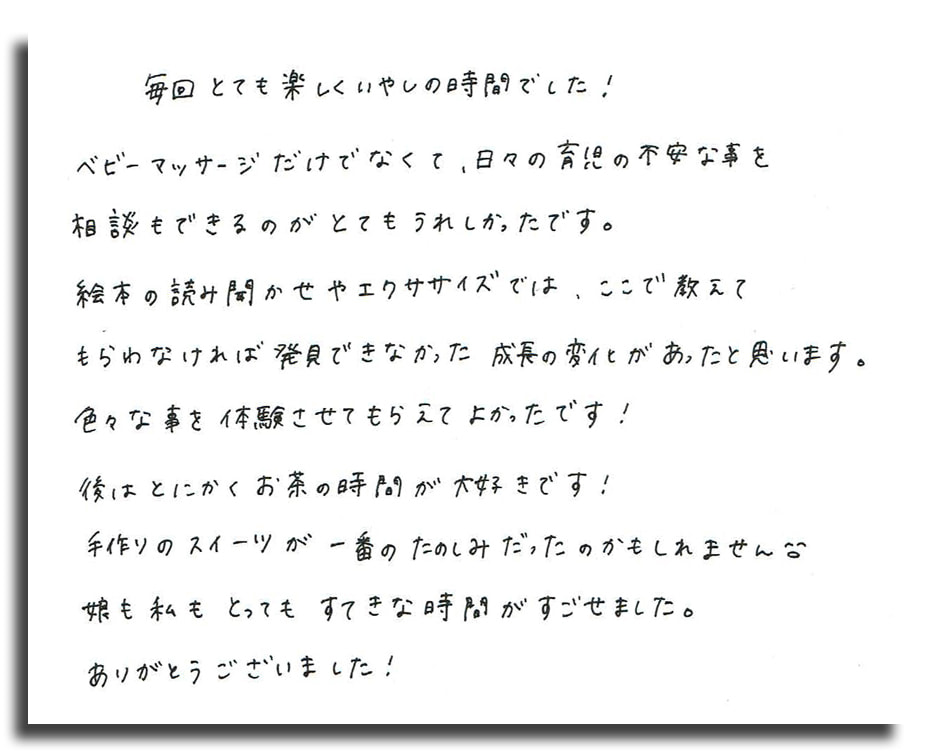 毎回とても楽しくいやしの時間でした！
ベビーマッサージだけでなくて、日々の育児の不安な事を
相談もできるのがとてもうれしかったです。
絵本の読み聞かせやエクササイズでは、ここで教えて
もらわなければ発見できなかった 成長の変化があったと思います。
色々な事を体験させてもらえてよかったです！
後はとにかくお茶の時間が大好きです！
手作りのスイーツが一番のたのしみだったのかもしれません
娘も私もとってもすてきな時間がすごせました。
ありがとうございました！